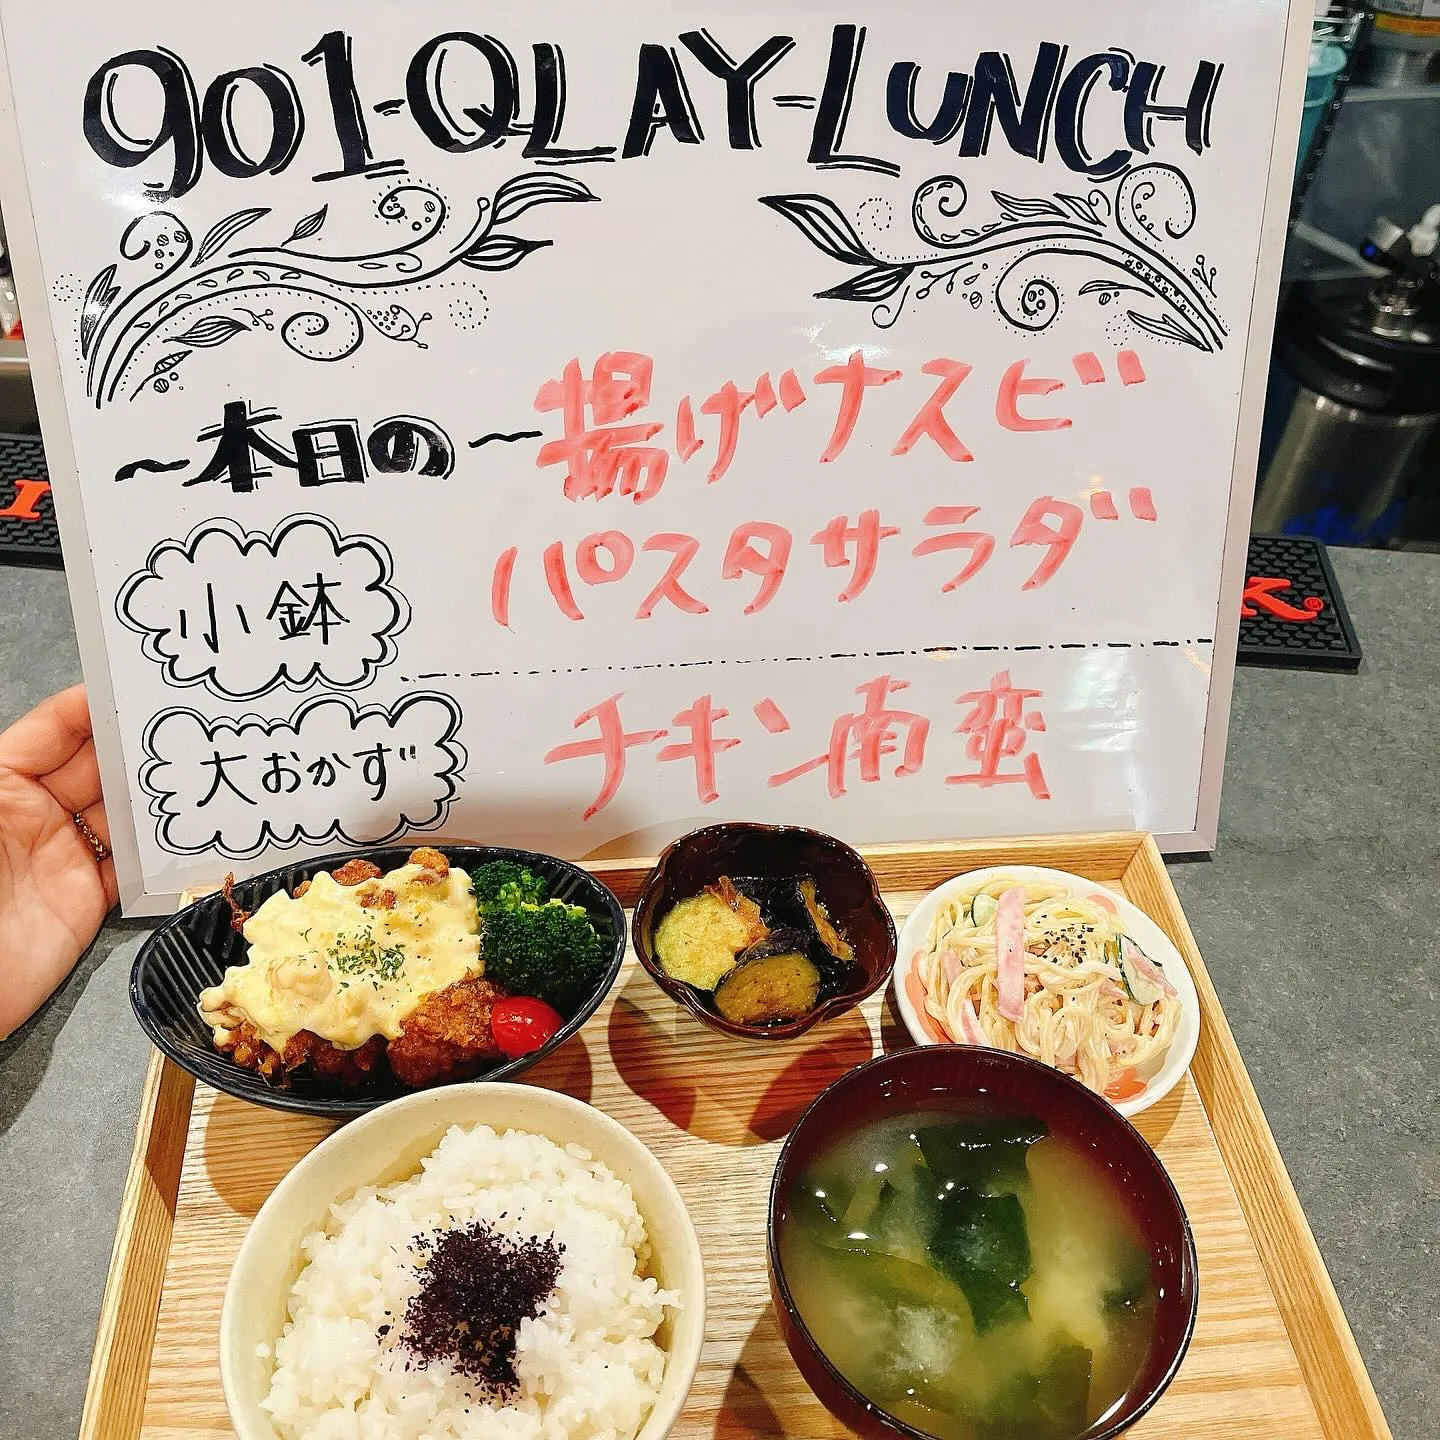 901-QLAY-LUNCH
~本日の~揚げナスビ
パスタサラダ
小鉢
チキン南蛮
大おかず
K®